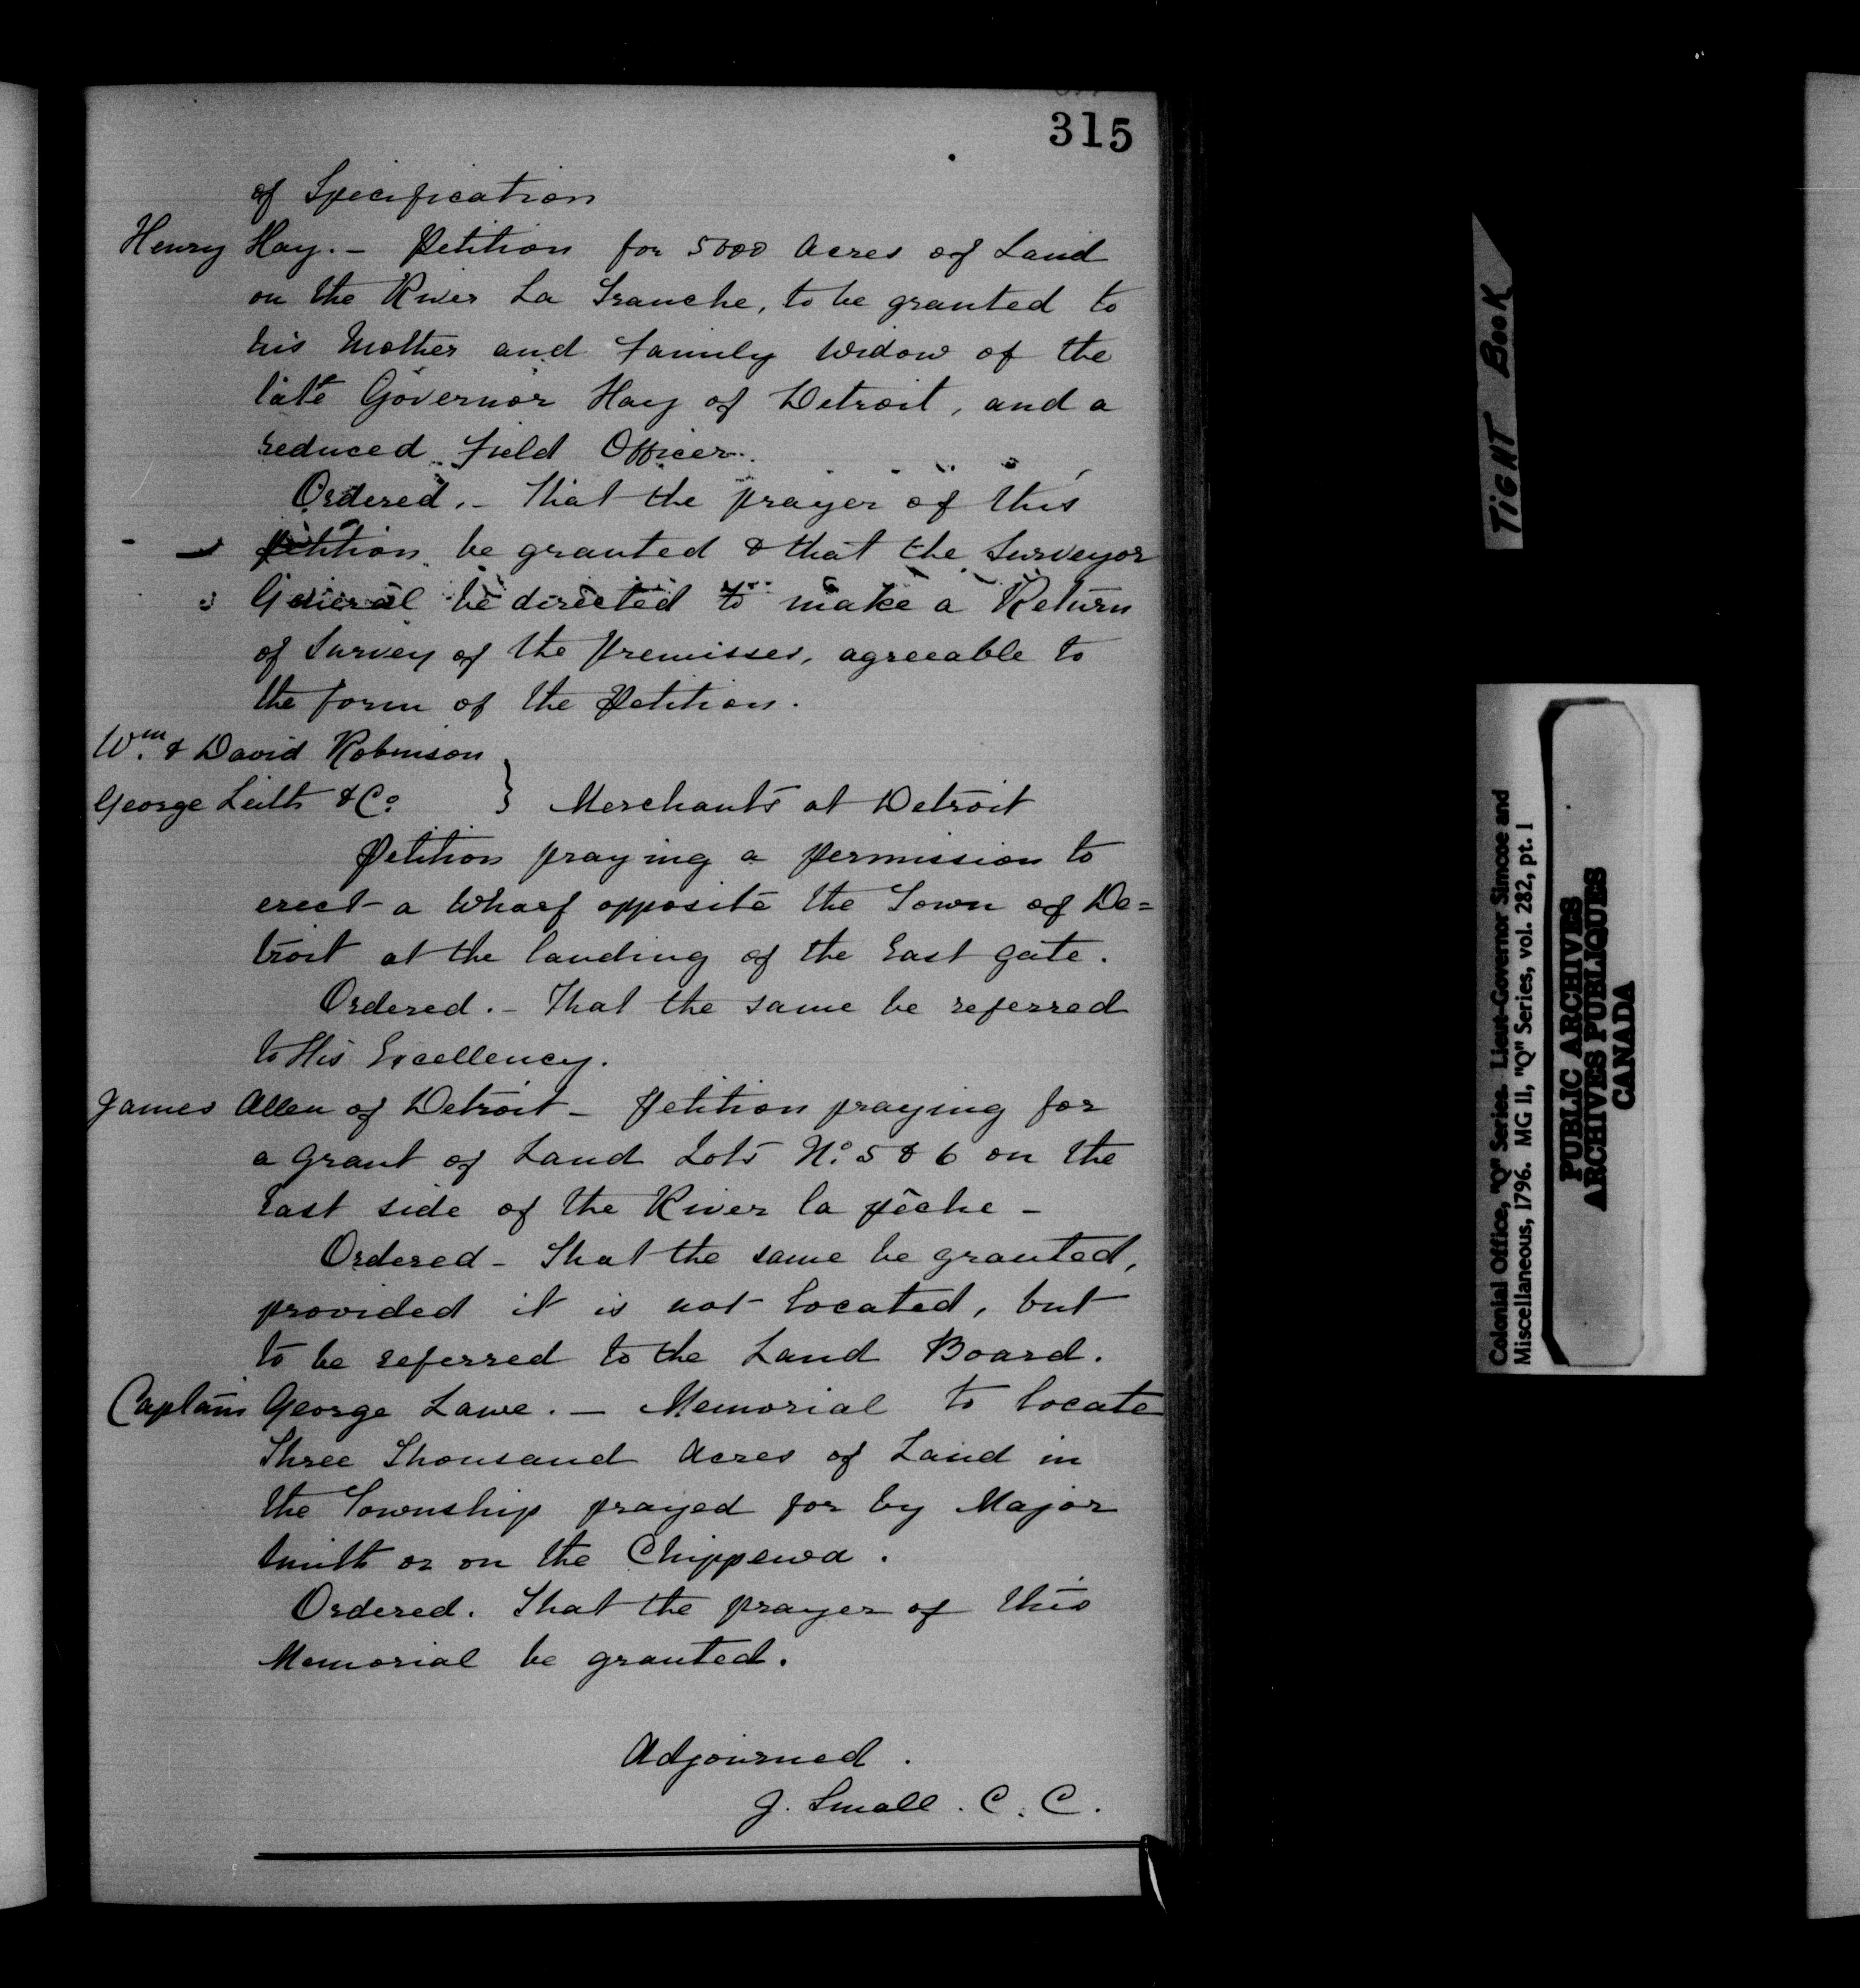 315
of Specification
Henry Hay. - Petition for 5000 Acres of Land
on the River La Tranche, to be granted to
his Mother and family Widow of the
late Governor Hay of Detroit, and a
reduced field Officer.
Ordered. - That the prayer of this
petition be granted & that the Surveyor
General be directed to make a Return
of Survey of the premisses, agreeable to
the form of the Petition.
Wm. & David Robinson
George Leith & Co. } Merchants at Detroit
Petition praying a permission to
erect a Wharf opposite the Town of De=
troit at the landing of the East gate.
Ordered. - That the same be referred
to His Excellency.
James Allen of Detroit - Petition praying for
a grant of Land Lots No. 5 & 6 on the
East side of the River la pêche -
Ordered - That the same be granted,
provided it is not located, but
to be referred to the Land Board.
Captain George Lawe. - Memorial to locate
Three Thousand Acres of Land in
the Township prayed for by Major
Smith or on the Chippewa.
Ordered. That the prayer of this
Memorial be granted.
Adjourned.
J. Small. C. C.
TIGHT BOOK
Colonial Office, "Q" Series. Lieut-Governor Simcoe and
Miscellaneous, 1796. MG 11, "Q" Series, vol. 282, pt. 1
PUBLIC ARCHIVES
ARCHIVES PUBLIQUES
CANADA